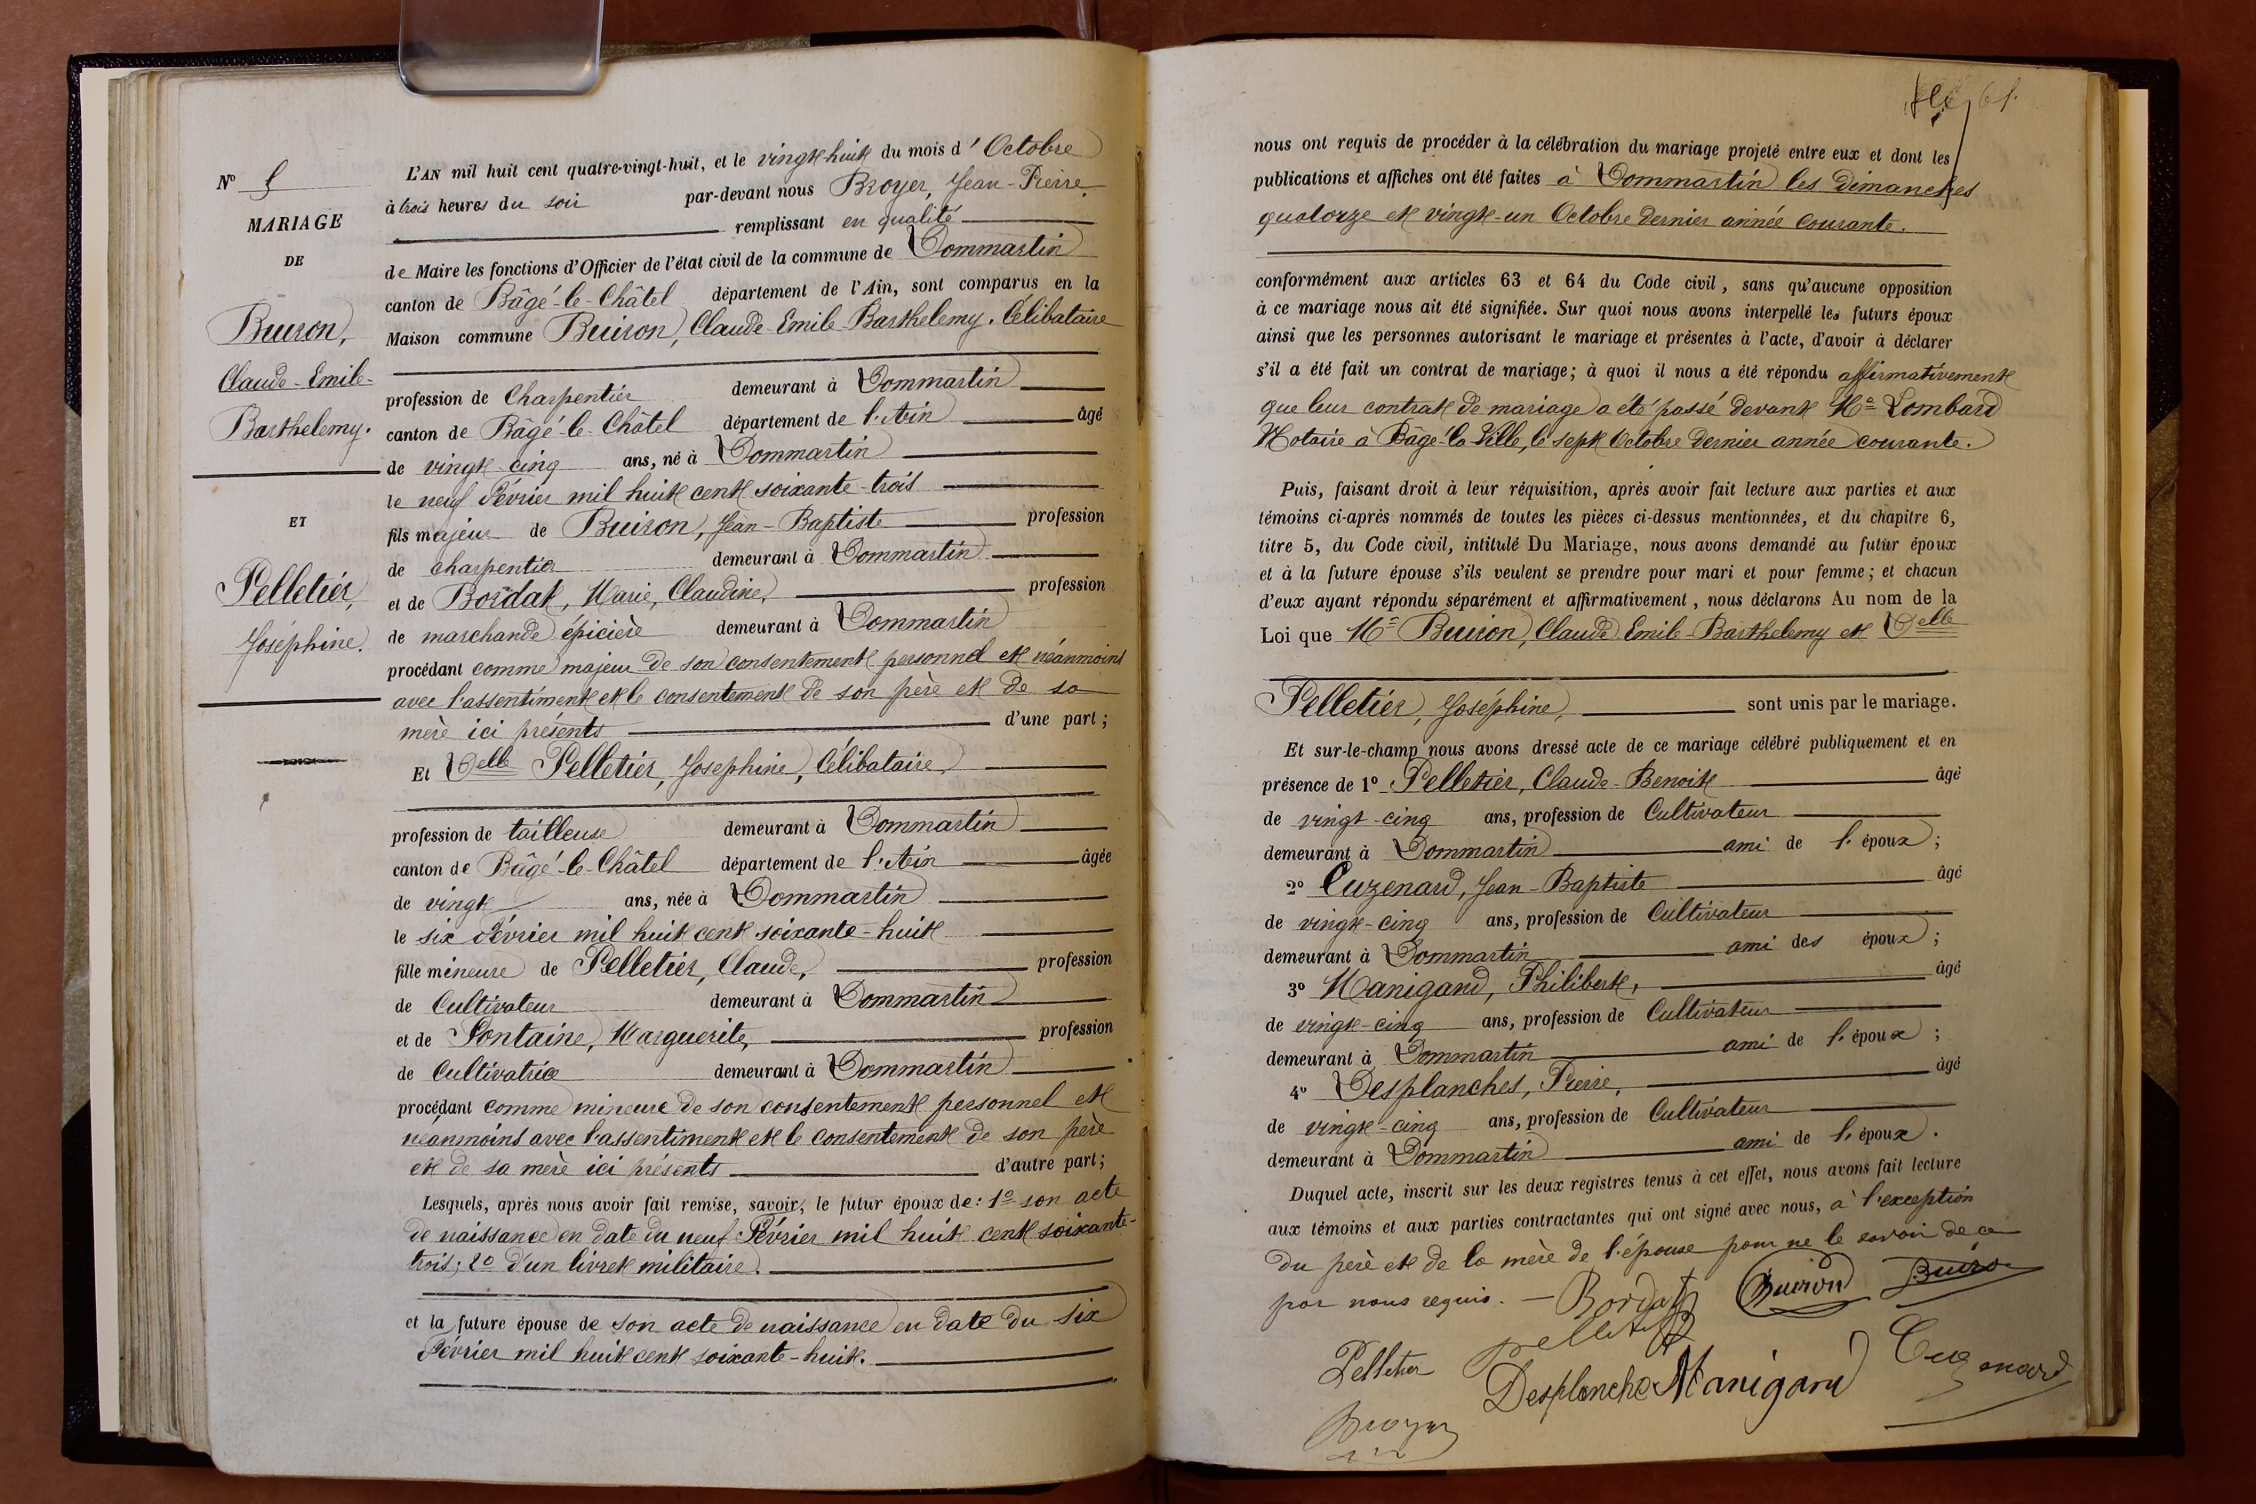 N° 5
MARIAGE
DE
Buiron,
Claude-Emile-
Barthelemy.
ET
Pelletier,
Joséphine.
L'AN mil huit cent quatre-vingt-huit, et le vingt-huit du mois d'Octobre
à trois heures du soir par-devant nous Broyer, Jean-Pierre
remplissant en qualité
de Maire les fonctions d'Officier de l'état civil de la commune de Dommartin
canton de Bâgé-le-Châtel département de l'Ain, sont comparus en la
Maison commune Buiron, Claude-Emile-Barthelemy, Célibataire
profession de Charpentier demeurant à Dommartin
canton de Bâgé-le-Châtel département de l'Ain âgé
de vingt-cinq ans, né à Dommartin
le neuf Février mil huit cent soixante-trois
fils majeur de Buiron, Jean-Baptiste profession
de charpentier demeurant à Dommartin
et de Bordat, Marie, Claudine, profession
de marchande épicière demeurant à Dommartin
procédant comme majeur de son consentement personnel et néanmoins
avec l'assentiment et le consentement de son père et de sa
mère ici présents d'une part ;
Et Delle Pelletier, Josephine, Célibataire,
profession de tailleuse demeurant à Dommartin
canton de Bâgé-le-Châtel département de l'Ain âgée
de vingt ans, née à Dommartin
le six Février mil huit cent soixante-huit
fille mineure de Pelletier, Claude, profession
de Cultivateur demeurant à Dommartin
et de Fontaine, Marguerite, profession
de Cultivatrice demeurant à Dommartin
procédant comme mineure de son consentement personnel et
néanmoins avec l'assentiment et le consentement de son père
et de sa mère ici présents d'autre part ;
Lesquels, après nous avoir fait remise, savoir, le futur époux de : 1° son acte
de naissance en date du neuf Février mil huit cent soixante-
trois ; 2° d'un livret militaire.
et la future épouse de son acte de naissance en date du six
Février mil huit cent soixante-huit.
61.
nous ont requis de procéder à la célébration du mariage projeté entre eux et dont les
publications et affiches ont été faites à Dommartin les dimanches
quatorze et vingt-un Octobre dernier année courante.
conformément aux articles 63 et 64 du Code civil, sans qu'aucune opposition
à ce mariage nous ait été signifiée. Sur quoi nous avons interpellé les futurs époux
ainsi que les personnes autorisant le mariage et présentes à l'acte, d'avoir à déclarer
s'il a été fait un contrat de mariage ; à quoi il nous a été répondu affirmativement
que leur contrat de mariage a été passé devant Me Lombard
Notaire à Bâgé-la-Ville, le sept Octobre dernier année courante.
Puis, faisant droit à leur réquisition, après avoir fait lecture aux parties et aux
témoins ci-après nommés de toutes les pièces ci-dessus mentionnées, et du chapitre 6,
titre 5, du Code civil, intitulé Du Mariage, nous avons demandé au futur époux
et à la future épouse s'ils veulent se prendre pour mari et pour femme ; et chacun
d'eux ayant répondu séparément et affirmativement, nous déclarons Au nom de la
Loi que Mr Buiron, Claude Emile-Barthelemy et Delle
Pelletier, Joséphine, sont unis par le mariage.
Et sur-le-champ nous avons dressé acte de ce mariage célébré publiquement et en
présence de 1° Pelletier, Claude-Benoit âgé
de vingt-cinq ans, profession de Cultivateur
demeurant à Dommartin ami de l'époux ;
2° Cuzenard, Jean-Baptiste âgé
de vingt-cinq ans, profession de Cultivateur
demeurant à Dommartin ami des époux ;
3° Manigand, Philibert, âgé
de vingt-cinq ans, profession de Cultivateur
demeurant à Dommartin ami de l'époux ;
4° Desplanches, Pierre, âgé
de vingt-cinq ans, profession de Cultivateur
demeurant à Dommartin ami de l'époux.
Duquel acte, inscrit sur les deux registres tenus à cet effet, nous avons fait lecture
aux témoins et aux parties contractantes qui ont signé avec nous, à l'exception
du père et de la mère de l'épouse pour ne le savoir de ce
par nous requis. Bordat Buiron Buiron
Pelletier Pelletier Cuzenard
Desplanche Manigand
Broyer